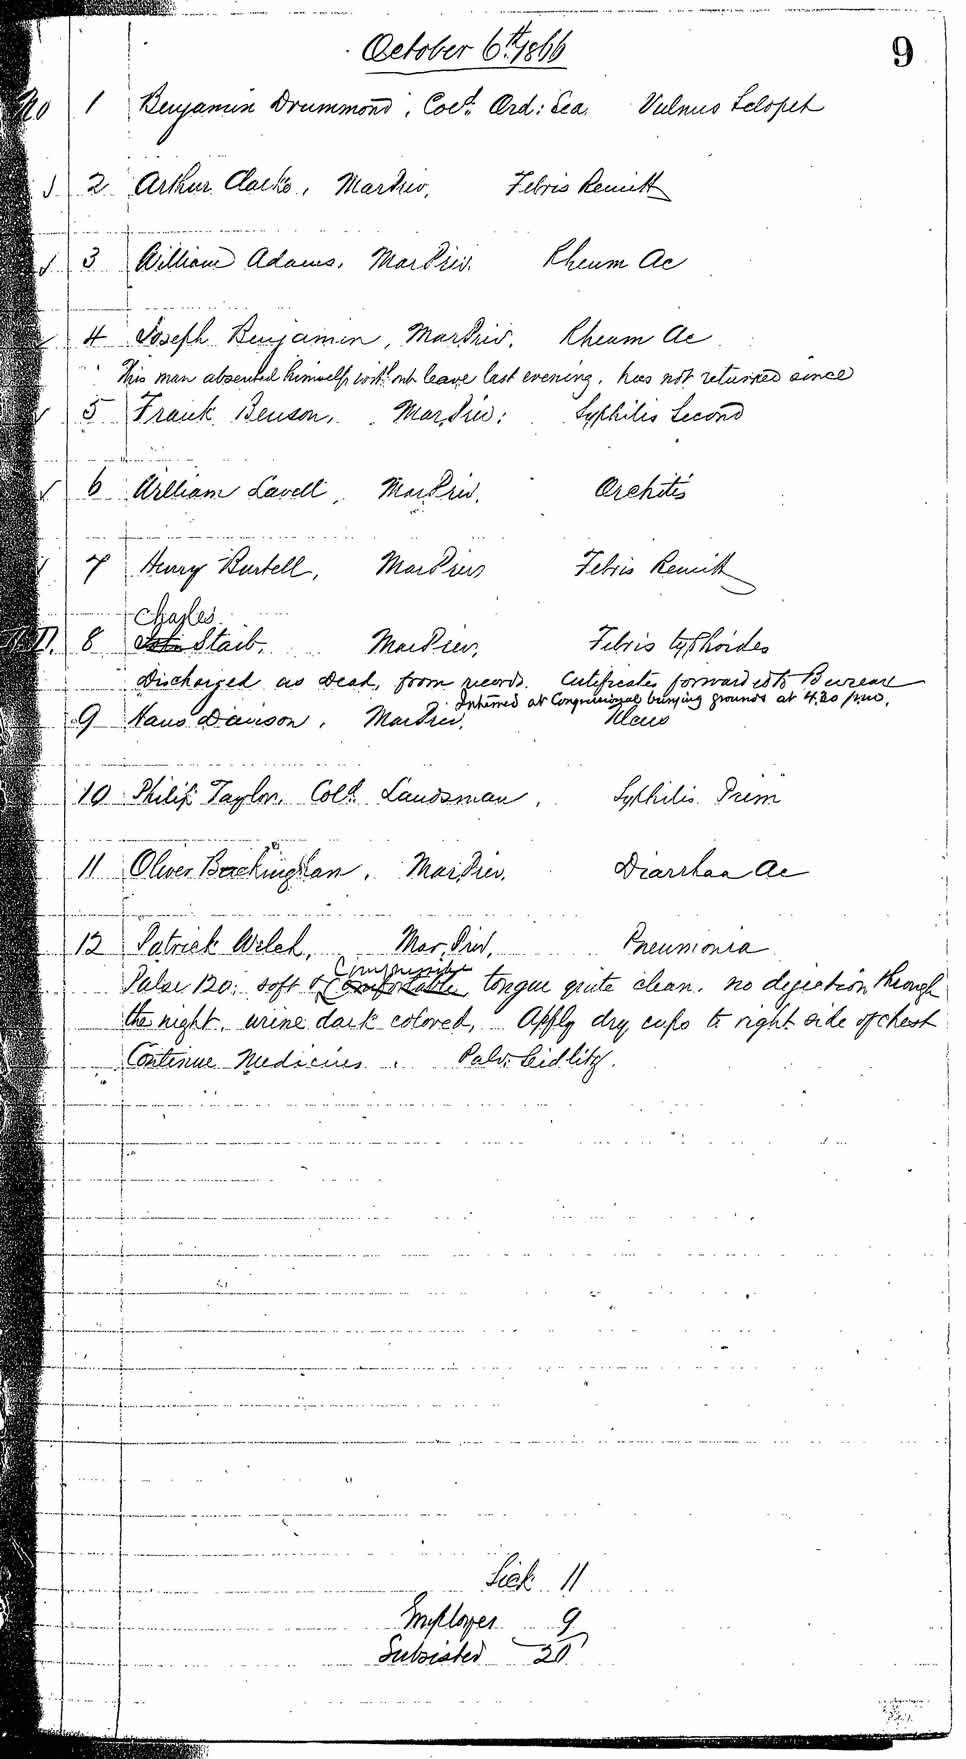 October 6th. 1866
9
No 1 Benjamin Drummond, Cold. Ord: Sea. Vulnus Sclopet
√ 2 Arthur Clarke, Mar Priv, Febris Remitt
√ 3 William Adams, Mar Priv. Rheum Ac
√ 4 Joseph Benjamin, Mar. Priv. Rheum Ac
This man absented himself without leave last evening, has not returned since
√ 5 Frank Benson, Mar, Priv: Syphilis Second
√ 6 William Lavell, Mar Priv, Orchitis
√ 7 Henry Burtell, Mar Priv, Febris Remitt
Charles
D. 8 Staib, Mar Priv, Febris typhoides
Discharged as Dead, from records. Certificates forwarded to Bureau
Interred at Congressional burying grounds at 4.20 p.m.
9 Hans Davison, Mar Priv, Ulcus
10 Philip Taylor, Cold. Landsman, Syphilis Prim
11 Oliver Buckingham, Mar, Priv. Diarrhœa Ac
12 Patrick Welch, Mar, Priv, Pneumonia
Compressible
Pulse 120, soft & Comfortable tongue quite clean. no dejection through
the night, urine dark colored, Apply dry cups to right side of chest
Continue Medicines. Pulv. Seidlitz.
Sick 11
Employes 9
Subsisted 20